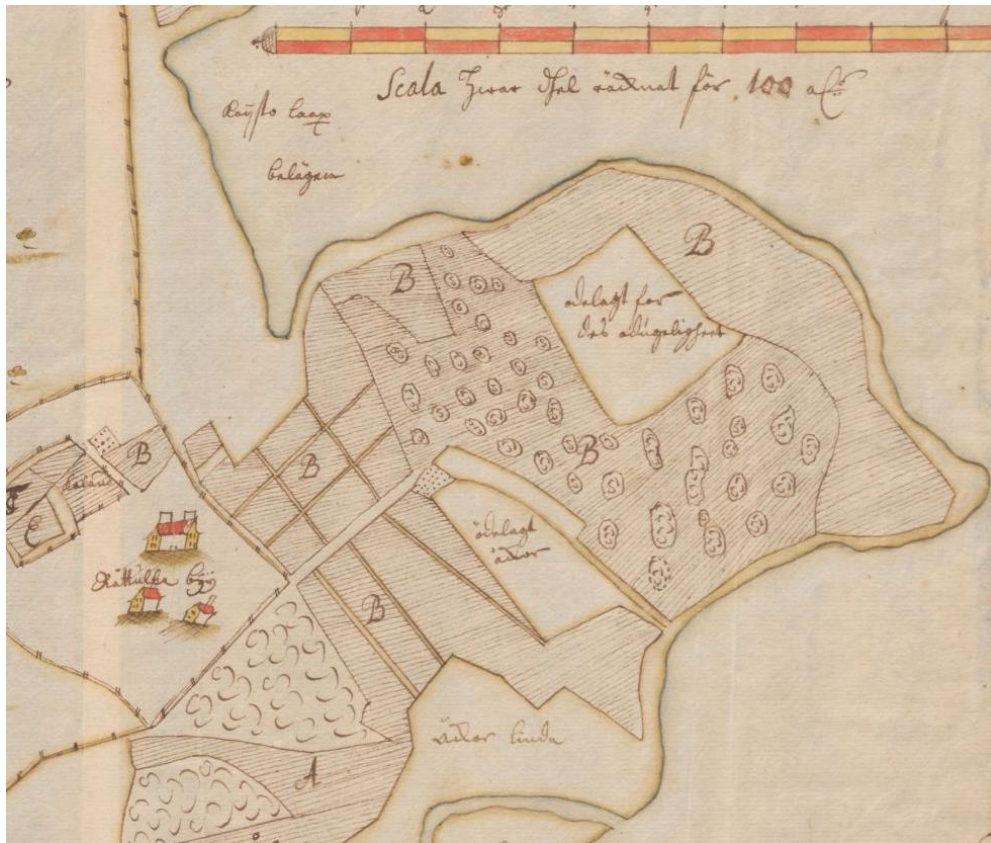 Scala hwar dehl räcknat för 100 alnr
belägen
B
B
ödelagt för
des odugeligheet
B
B
B
E
ödelagt
åker
Rättulla by
B
åker linda
A